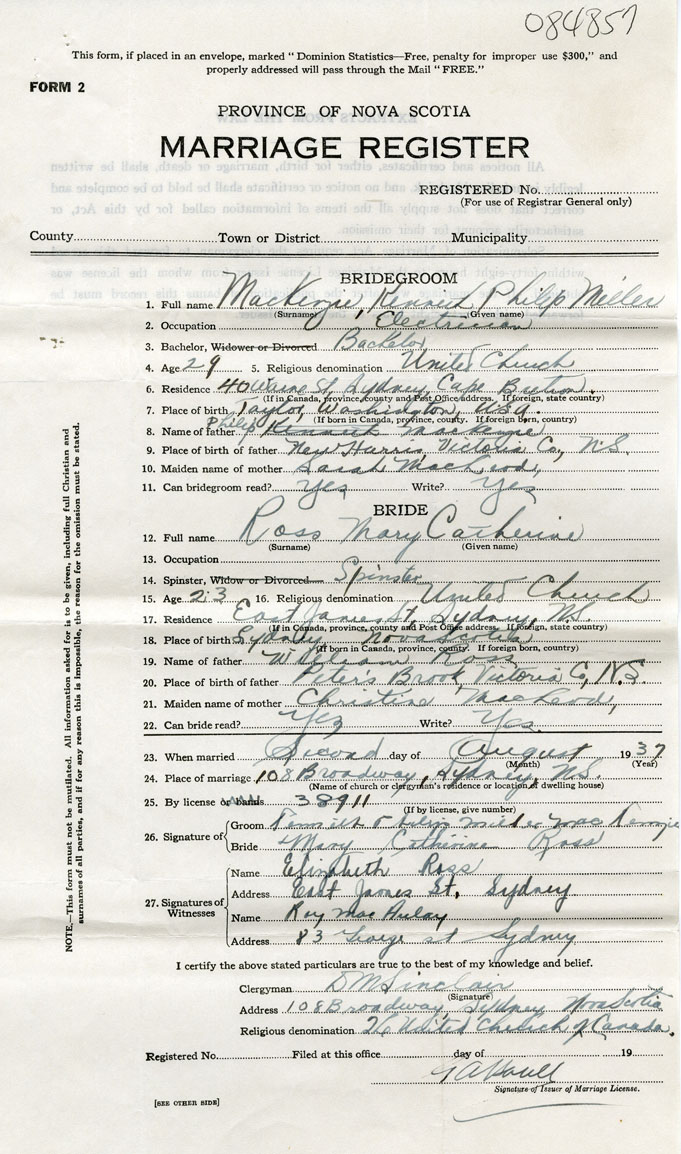 084857
This form, if placed in an envelope, marked "Dominion Statistics—Free, penalty for improper use $300," and
properly addressed will pass through the Mail "FREE."
FORM 2
PROVINCE OF NOVA SCOTIA
MARRIAGE REGISTER
REGISTERED No.
(For use of Registrar General only)
County Town or District Municipality
BRIDEGROOM
1. Full name MacKenzie, Kenneth Philip Miller
(Surname) (Given name)
2. Occupation Electrician
3. Bachelor, Widower or Divorced Bachelor
4. Age 29 5. Religious denomination United Church
6. Residence 40 St, Sydney, Cape Breton.
(If in Canada, province, county and Post Office address. If foreign, state country)
7. Place of birth Taylor, Washington, USA.
(If born in Canada, province, county. If foreign born, country)
8. Name of father Philip Kenneth MacKenzie
9. Place of father New Harris, Victoria Co, N.S.
10. Maiden name of mother Sarah MacLeod,
11. Can bridegroom read? Yes Write? Yes
BRIDE
12. Full name Ross Mary Catherine
(Surname) (Given name)
13. Occupation
14. Spinster, Widow or Divorced Spinster
15. Age 23 16. Religious denomination United Church
17. Residence East James St, Sydney, N.S.
(If in Canada, province, county and Post Office address. If foreign, state country)
18. Place of birth Sydney, Nova Scotia
(If born in Canada, province, county. If foreign born, country)
19. Name of father William Ross
20. Place of birth of father Peter's Brook, Victoria Co, N.S.
21. Maiden name of mother Christine MacLeod,
22. Can bride read? Yes Write? Yes.
23. When married Second day of August 1937
(Month) (Year)
24. Place of marriage 108 Broadway, Sydney, N.S.
(Name of church or clergyman's residence or location of dwelling house)
25. By license or banns 38911
(If by license, give number)
26. Signature of
Groom Kenneth Philip Miller MacKenzie
Bride Mary Catherine Ross
27. Signatures of Witnesses
Name Elizabeth Ross
Address East James St, Sydney
Name Roy MacAulay
Address 83 George st Sydney
I certify the above stated particulars are true to the best of my knowledge and belief.
Clergyman D M Sinclair
(Signature)
Address 108 Broadway, Sydney Nova Scotia
Religious denomination The United Church of Canada.
Registered No. Filed at this office day of 19
Signature of Issuer of Marriage License.
[SEE OTHER SIDE]
NOTE.—This form must not be mutilated. All information asked for is to be given, including full Christian and
surnames of all parties, and if for any reason this is impossible, the reason for the omission must be stated.